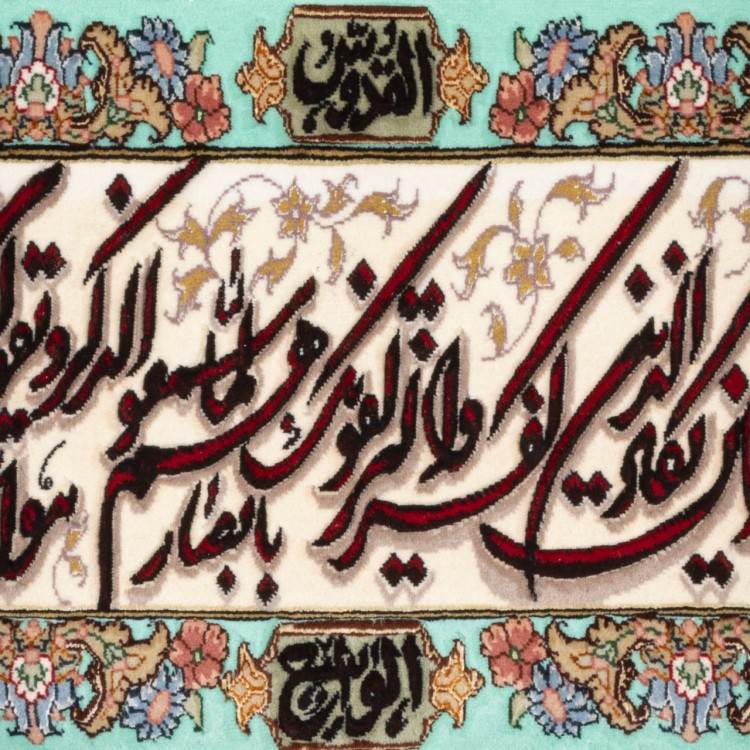 القدوس
وان یکاد الذین کفروا لیزلقونک بابصارهم لما سمعوا الذکر و یقولون
الواسع